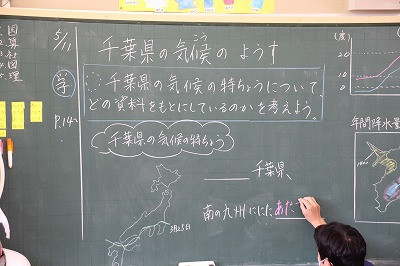 5/11
千葉県の気候のようす
こう
学
千葉県の気候の特ちょうについて、
どの資料をもとにしているのかを考えよう。
P.14~
千葉県の気候の特ちょう
千葉県、
南の九州ににた あた
3月25日
年間降水量
(度)
20
10
0
国
算
図
理